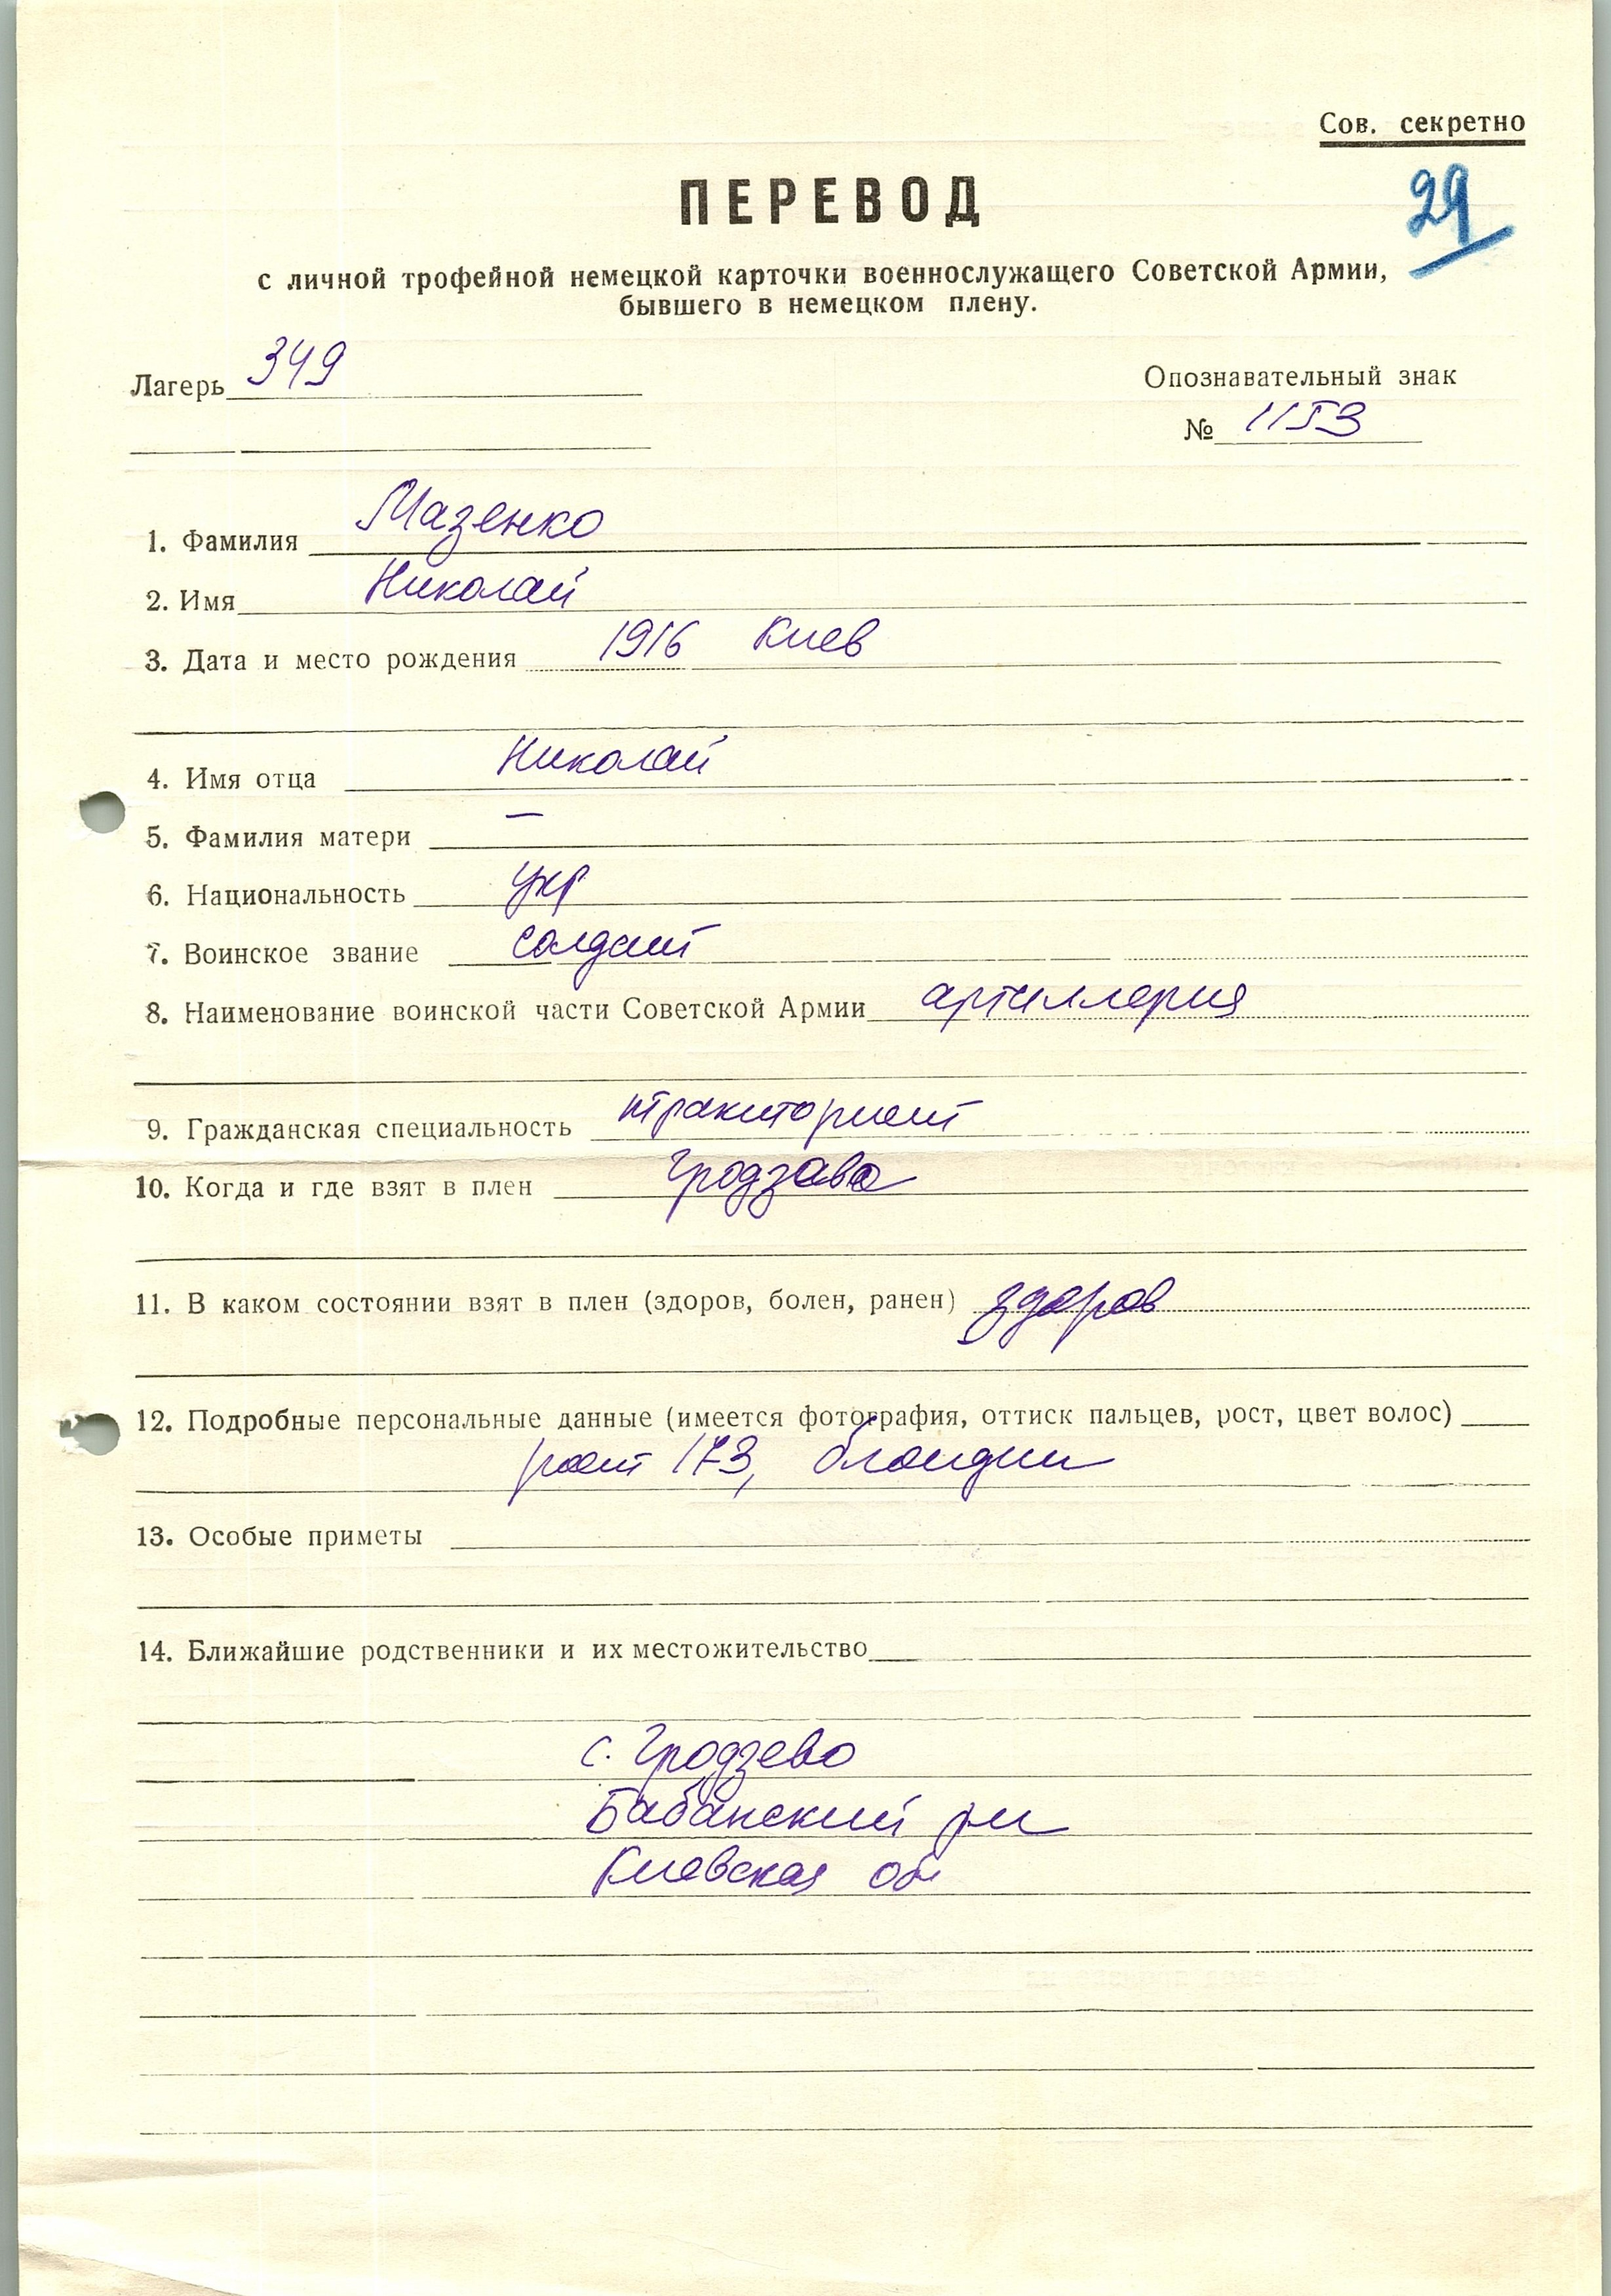 Сов. секретно
29
ПЕРЕВОД
с личной трофейной немецкой карточки военнослужащего Советской Армии,
бывшего в немецком плену.
Лагерь 349
Опознавательный знак
№ 1153
1. Фамилия Мазенко
2. Имя Николай
3. Дата и место рождения 1916 Киев
4. Имя отца Николай
5. Фамилия матери –
6. Национальность укр
7. Воинское звание солдат
8. Наименование воинской части Советской Армии артиллерия
9. Гражданская специальность тракторист
10. Когда и где взят в плен Гродзава
11. В каком состоянии взят в плен (здоров, болен, ранен) здоров
12. Подробные персональные данные (имеется фотография, оттиск пальцев, рост, цвет волос)
рост 173, блондин
13. Особые приметы
14. Ближайшие родственники и их местожительство
с. Гродзево
Бабанский рн
Киевская обл